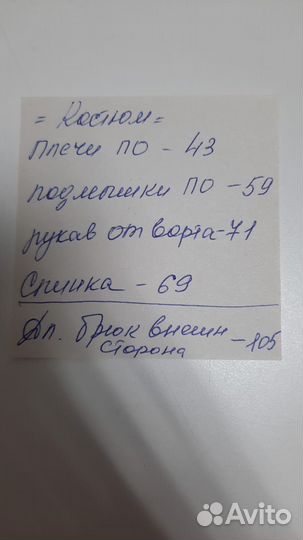 = Костюм =
Плечи ПО - 43
подмышки ПО - 59
рукав от ворта - 71
Спинка - 69
Дл. Брюк внешн - 105
сторона
Avito